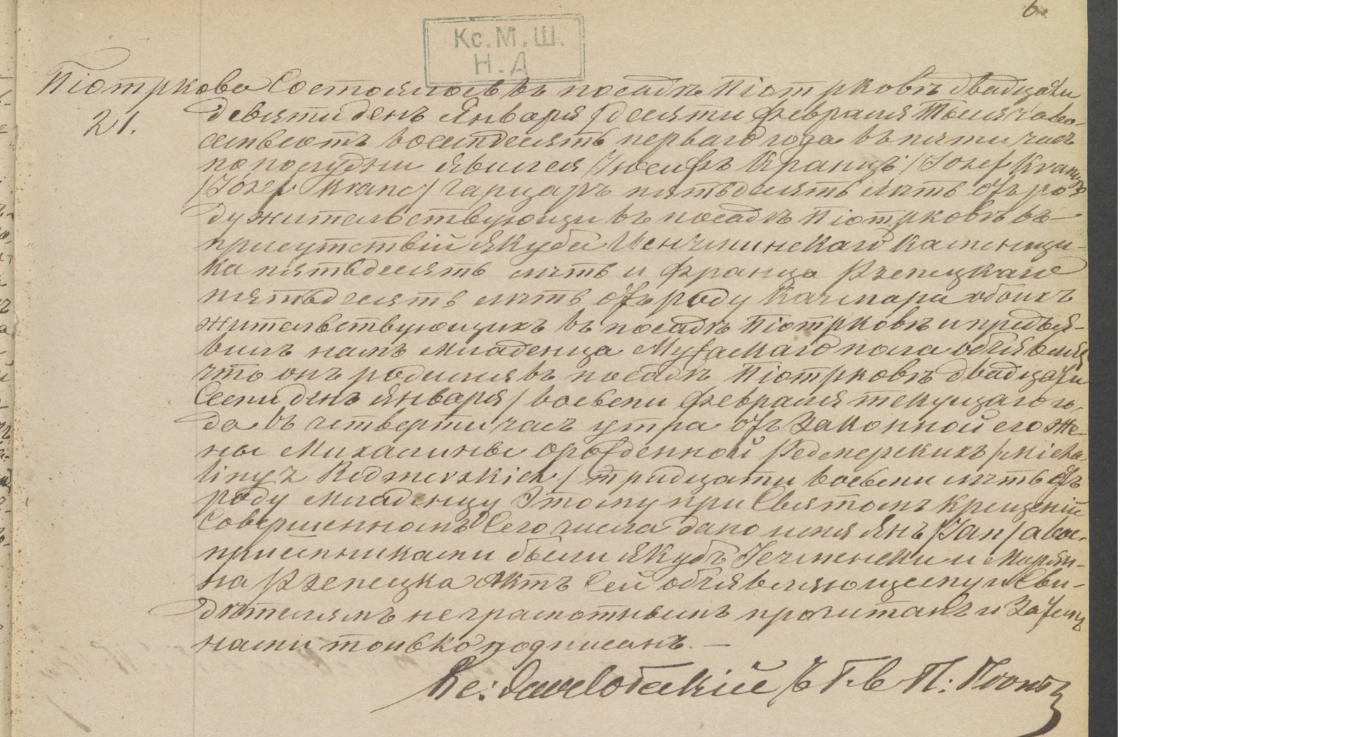 6.
Кс. М. Ш.
Н. Д
Піотрково Состоялось въ посадѣ Піотрковѣ двадцать
21.
девяти день Января / десяти Февраля Тысяча во-
семьсотъ восемдесятъ перваго года въ пяти часъ
по полудни явился Іосифъ Кранцъ / Józef Kranc
/ Józef Kranc / гарцаръ пятьдесятъ лѣтъ отъ ро-
ду жительствующи въ посадѣ Піотрковѣ въ
присутствіи Якуба каменщи-
ка пятьдесятъ лѣтъ и Франца Ржепецкаго
пятьдесятъ лѣтъ отъ роду качмара обоихъ
жительствующихъ въ посадѣ Піотрковѣ и предъя-
вилъ намъ младенца Мужескаго пола объявляя
что онъ родился въ посадѣ Піотрковѣ двадцать
семи день Января / восьеми Февраля текущаго го-
да въ четверти часъ утра отъ Законной его Же-
ны Михалины орожденной / Micha-
liny z / тридцати восьеми лѣтъ отъ
роду младенцу Этому при Святомъ крещеніи
совершенномъ Сего числа дано имя Янъ / Jan / а вос-
пріемниками были Якубъ и Марян-
на Ржепецка Актъ сей объявляющему и Сви-
дѣтелямъ неграмотнымъ прочитанъ и
нами только подписанъ. —
Кс: П: